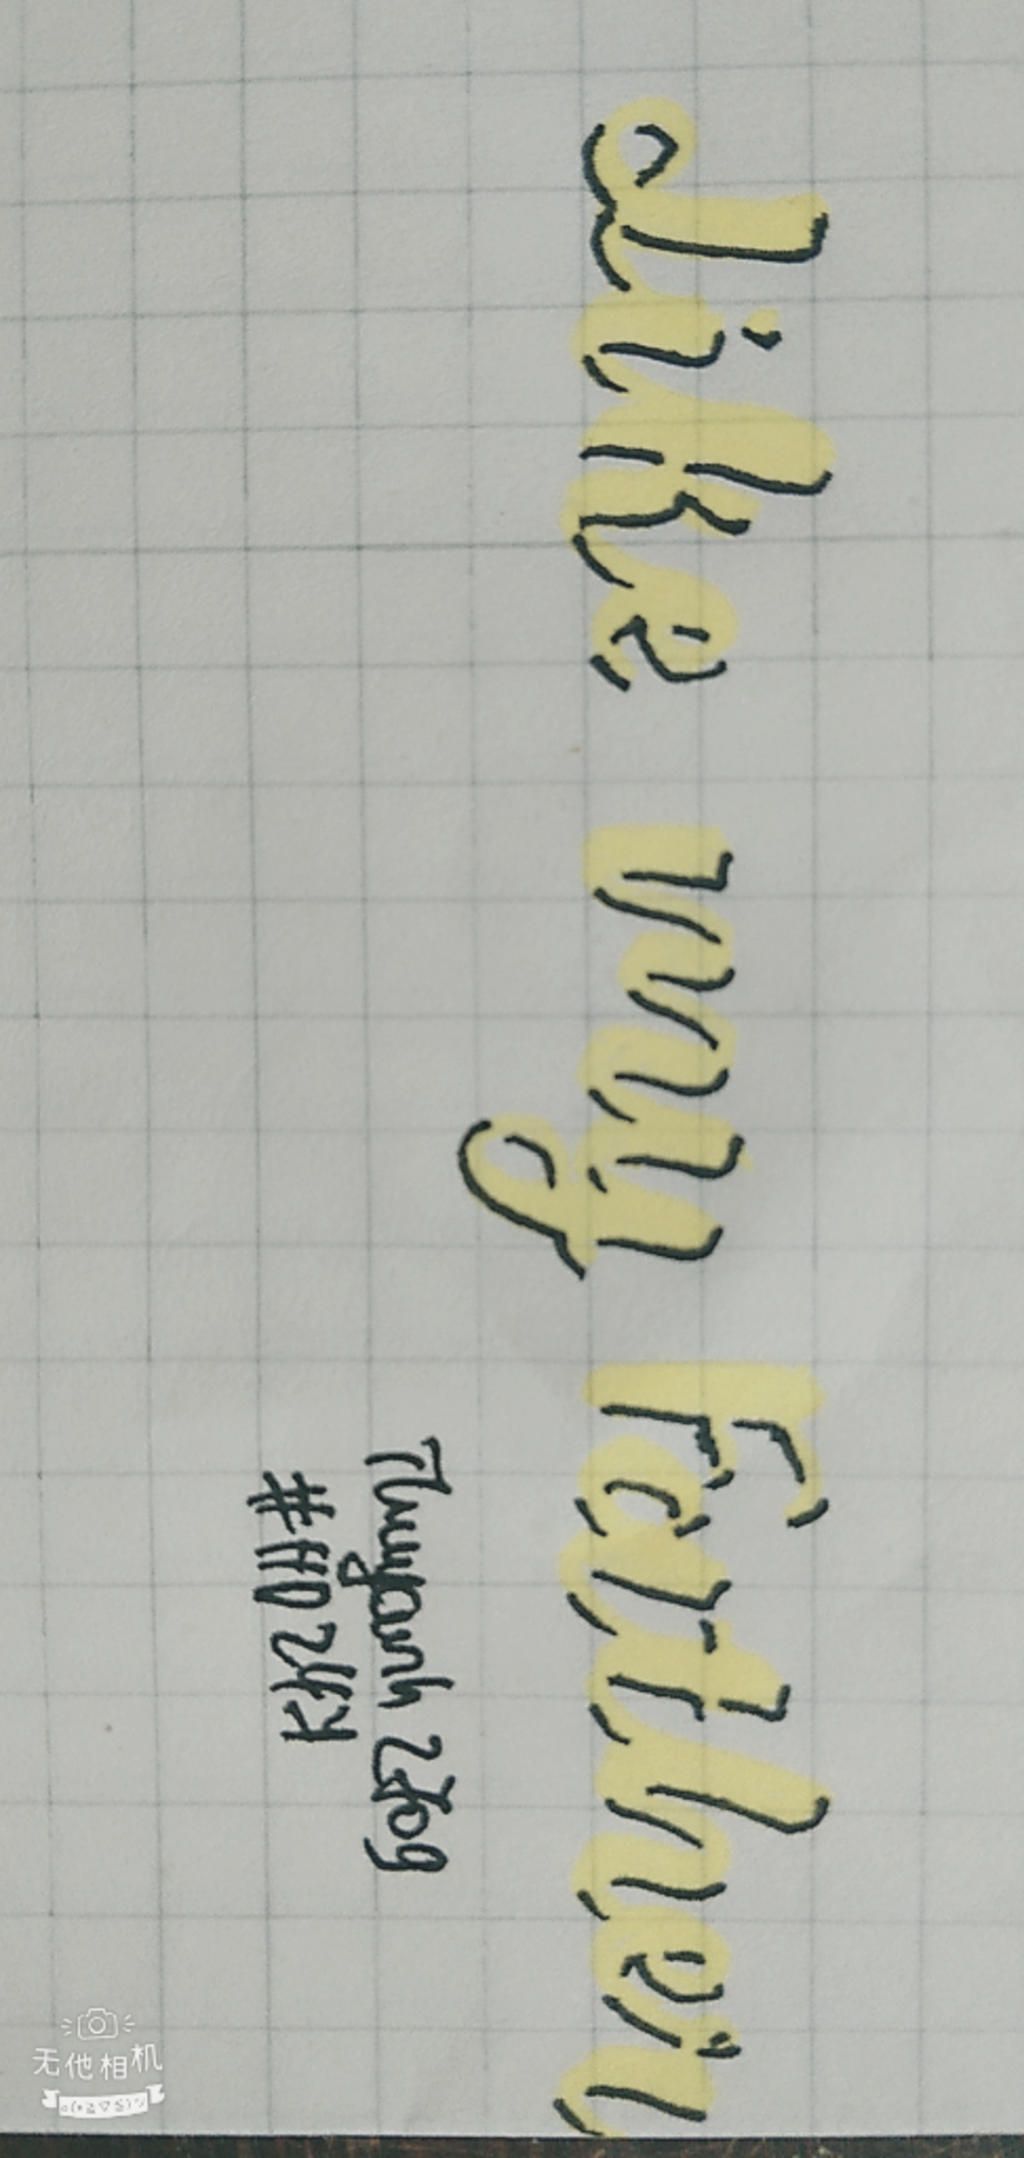 Like my Father
Thuyanh 2509
无他相机